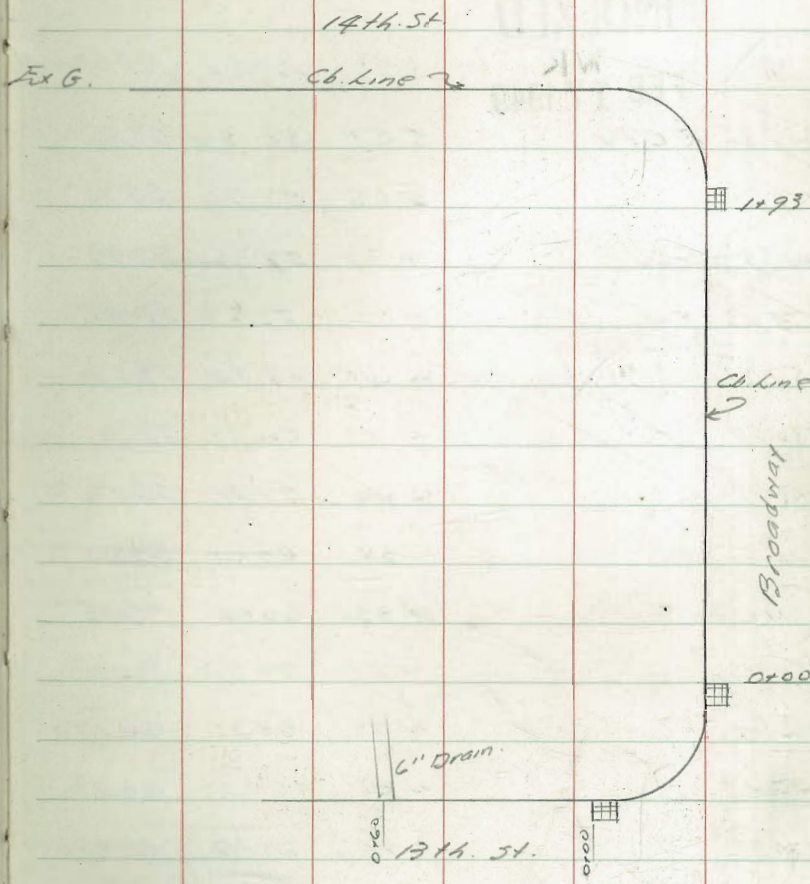 14th. St.
Ex G.
Cb. Line
1+93
Cb. Line
Broadway
0+00
6" Drain.
0+60
13th. St.
0+00